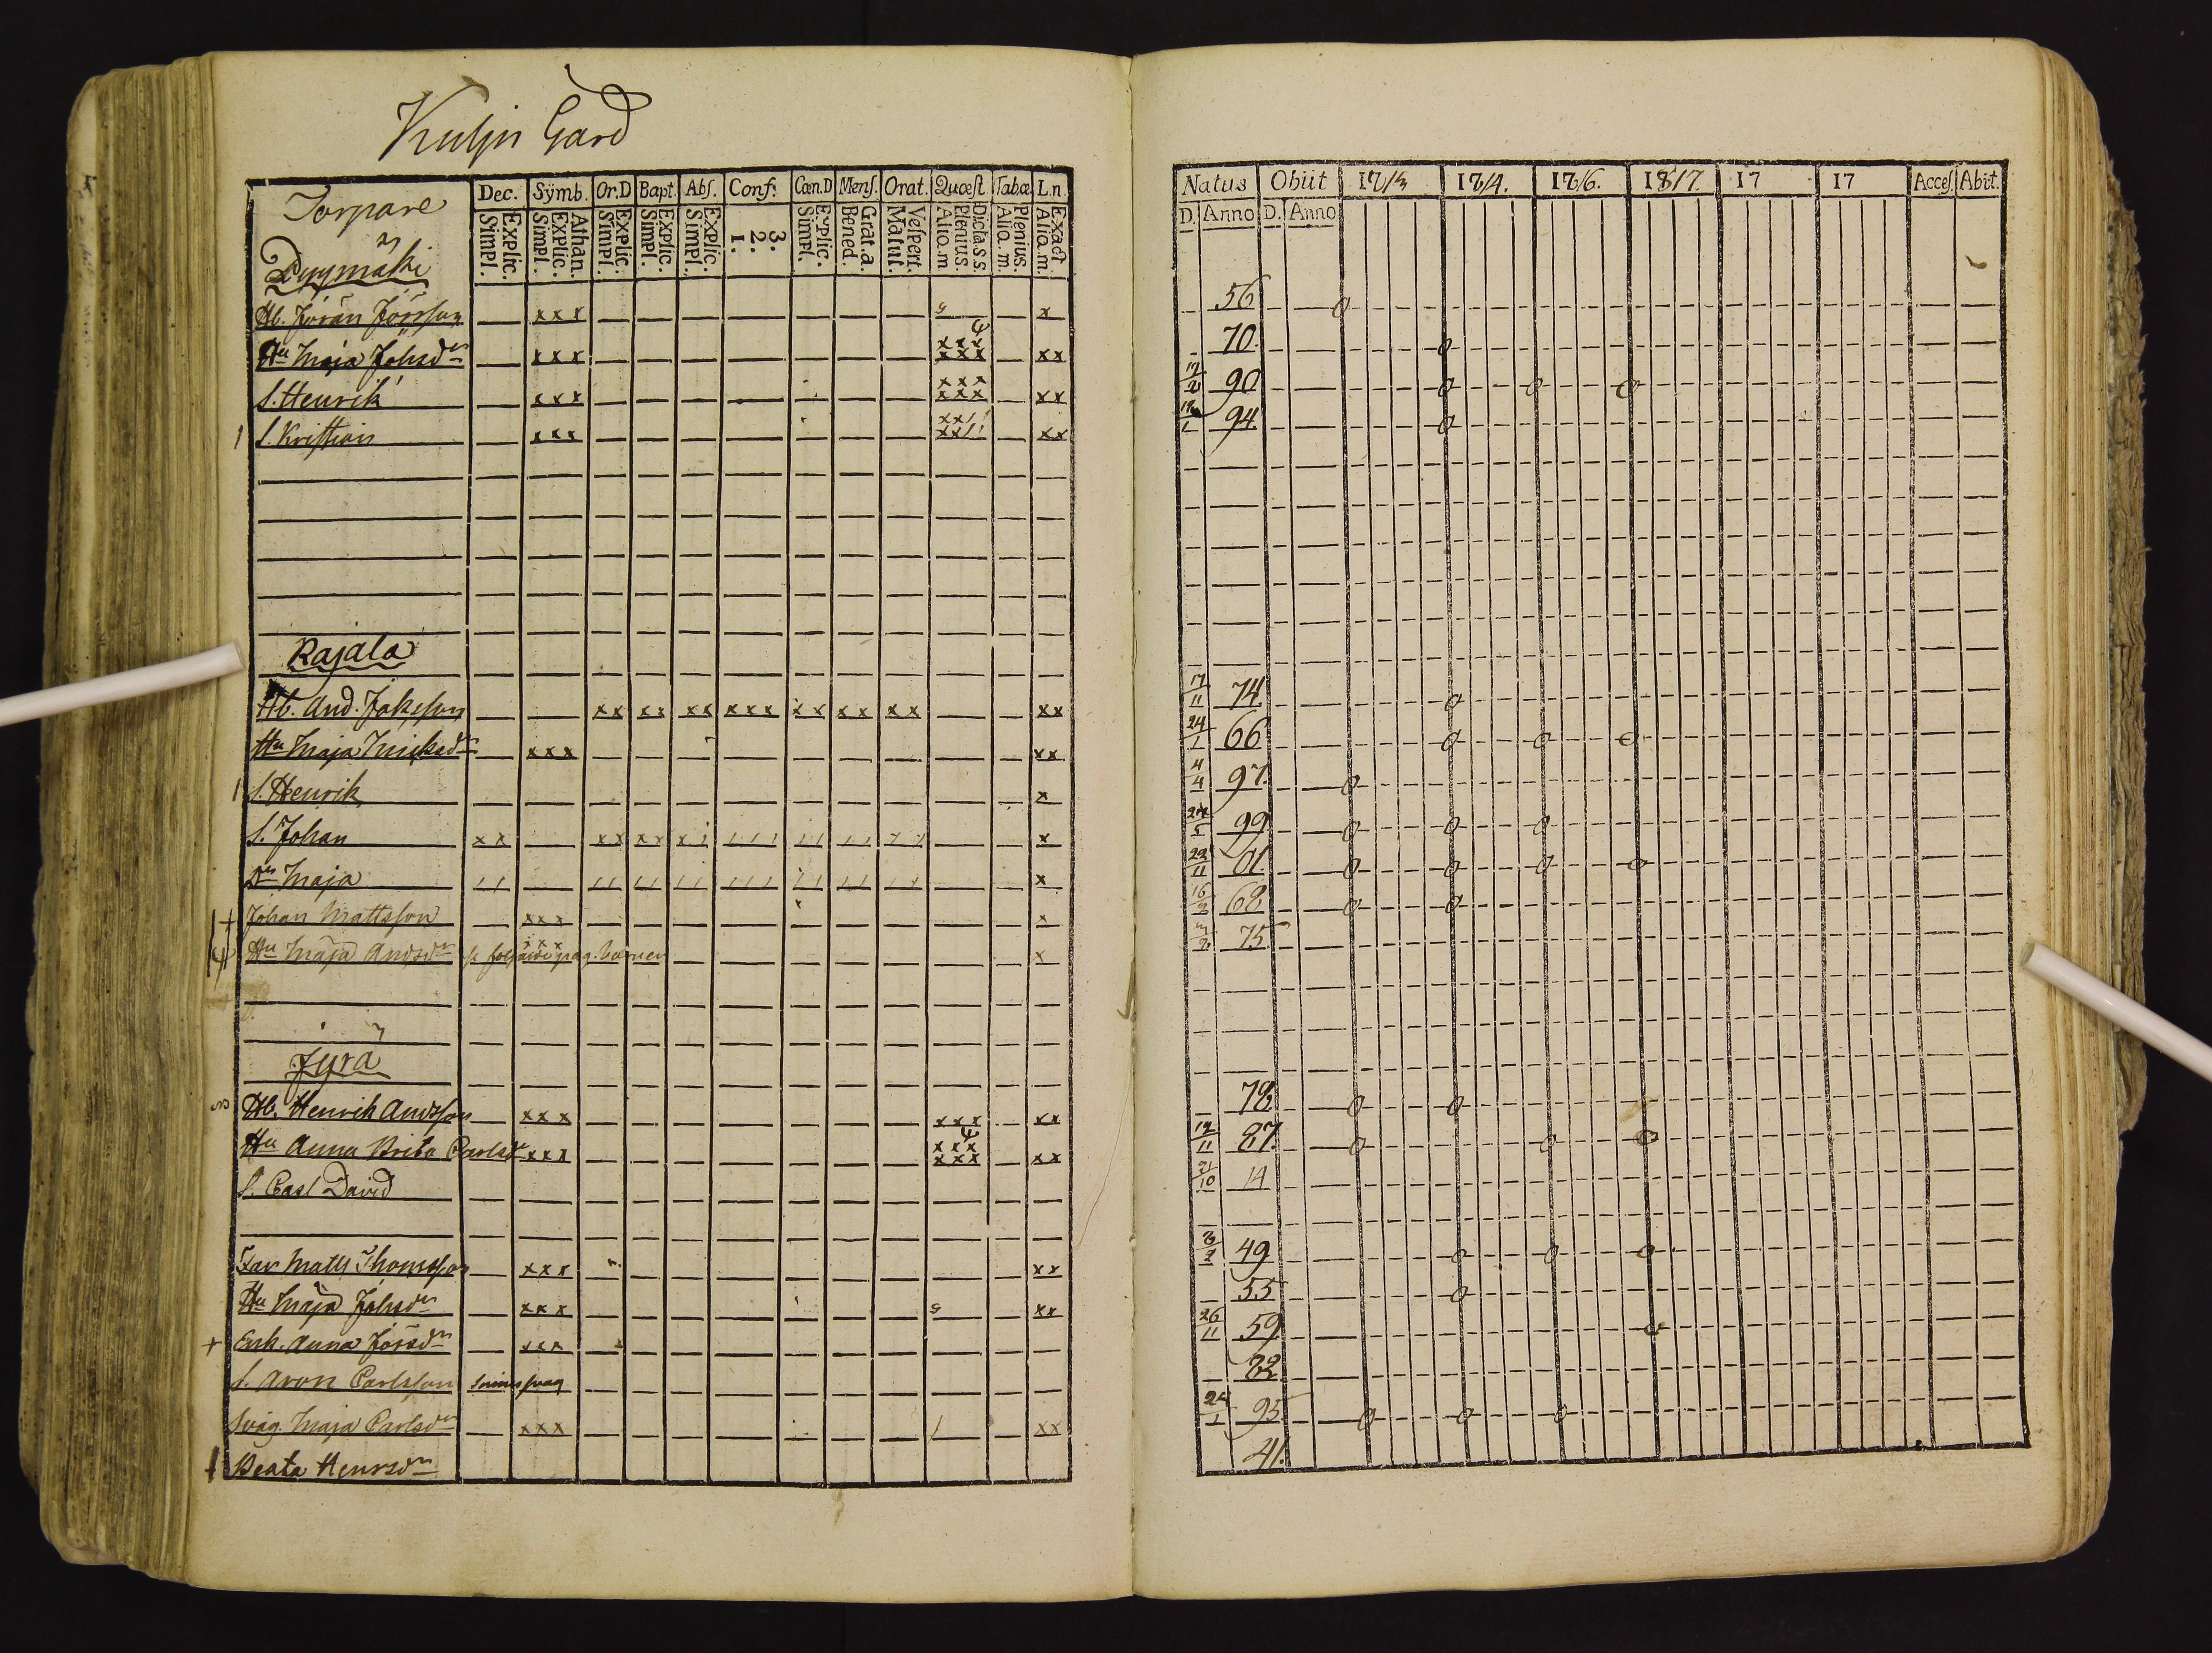 Kulju Gård
Torpare
Dec. Symb. Or.D Bapt. Abs. Conf: Cœn.D Mens. Orat. Quœst Tabæ L.n
Explic. Simpl. Athan. Explic. Simpl. Explic. Simpl. Explic. Simpl. Explic. Simpl. 3. 2. 1. Explic. Simpl. Grat.a. Bened. Vespert. Matut. Dicta S.S. Plenius. Aliq.m Plenius. Aliq.m. Exact Aliq.m.
Natus Obiit 1813 1814. 1816. 1817. 17 17 Acces. Abit.
D. Anno D. Anno
Pyymäki
Hb. Jöran Jörsson xxx x 56
Hu Maja Johsdr xxx xxx xxx xx 70
S. Henrik xxx xxx xxx xx 17/2 90
S. Kristian xxx xx 94
Rajala
Hb. And. Jakesson xx xx xx xxx xx xx xx xx 17/11 74.
Hu Maja xxx xx 24/1 66
S. Henrik x 4/4 97.
S. Johan xx xx xx x 24/5 99
Dr Maja x 22/11 01.
Johan Mattsson xxx x 16/2 68
Hu Maja Andsdr xxx x 75
Jyrä
Hb. Henrik Andsson xxx xxx xx 78.
Hu Anna Brita Carlsdr xxx xxx xxx xx 12/11 87.
S. Carl David 21/10 14
Far Matts Thomsson xxx xx 49
Hu Maja Johsdr xxx xx 55
Enk. Anna Jörsdr xxx 26/11 59
S. Aron Carlsson sinnessvag 82
Svåg. Maja Carlsdr xxx xx 24/1 95
Beata Henrsdr 41.